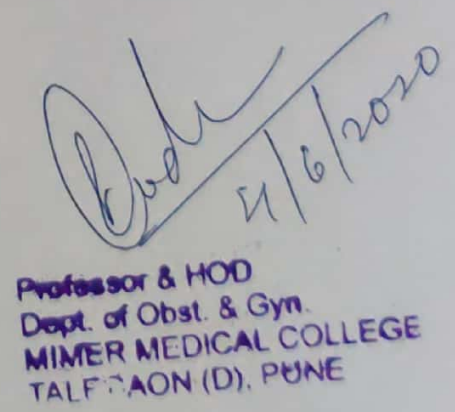 /6/2020
Professor & HOD
Dept. of Obst. & Gyn.
MIMER MEDICAL COLLEGE
(D), PUNE